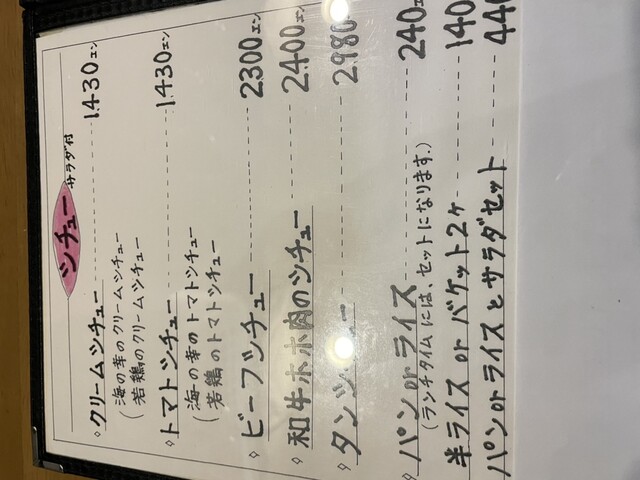 シチュー サラダ付
◦クリームシチュー 1430エン
(海の幸のクリームシチュー
若鶏のクリームシチュー
◦トマトシチュー 1430エン
(海の幸のトマトシチュー
若鶏のトマトシチュー
◇ビーフシチュー 2300エン
◇和牛ホホ肉のシチュー 2400エン
◇タンシチュー 2980
◦パンorライス 240エン
(ランチタイムには、セットになります。)
半ライス or バケット2ヶ 140
パンorライスとサラダセット 440